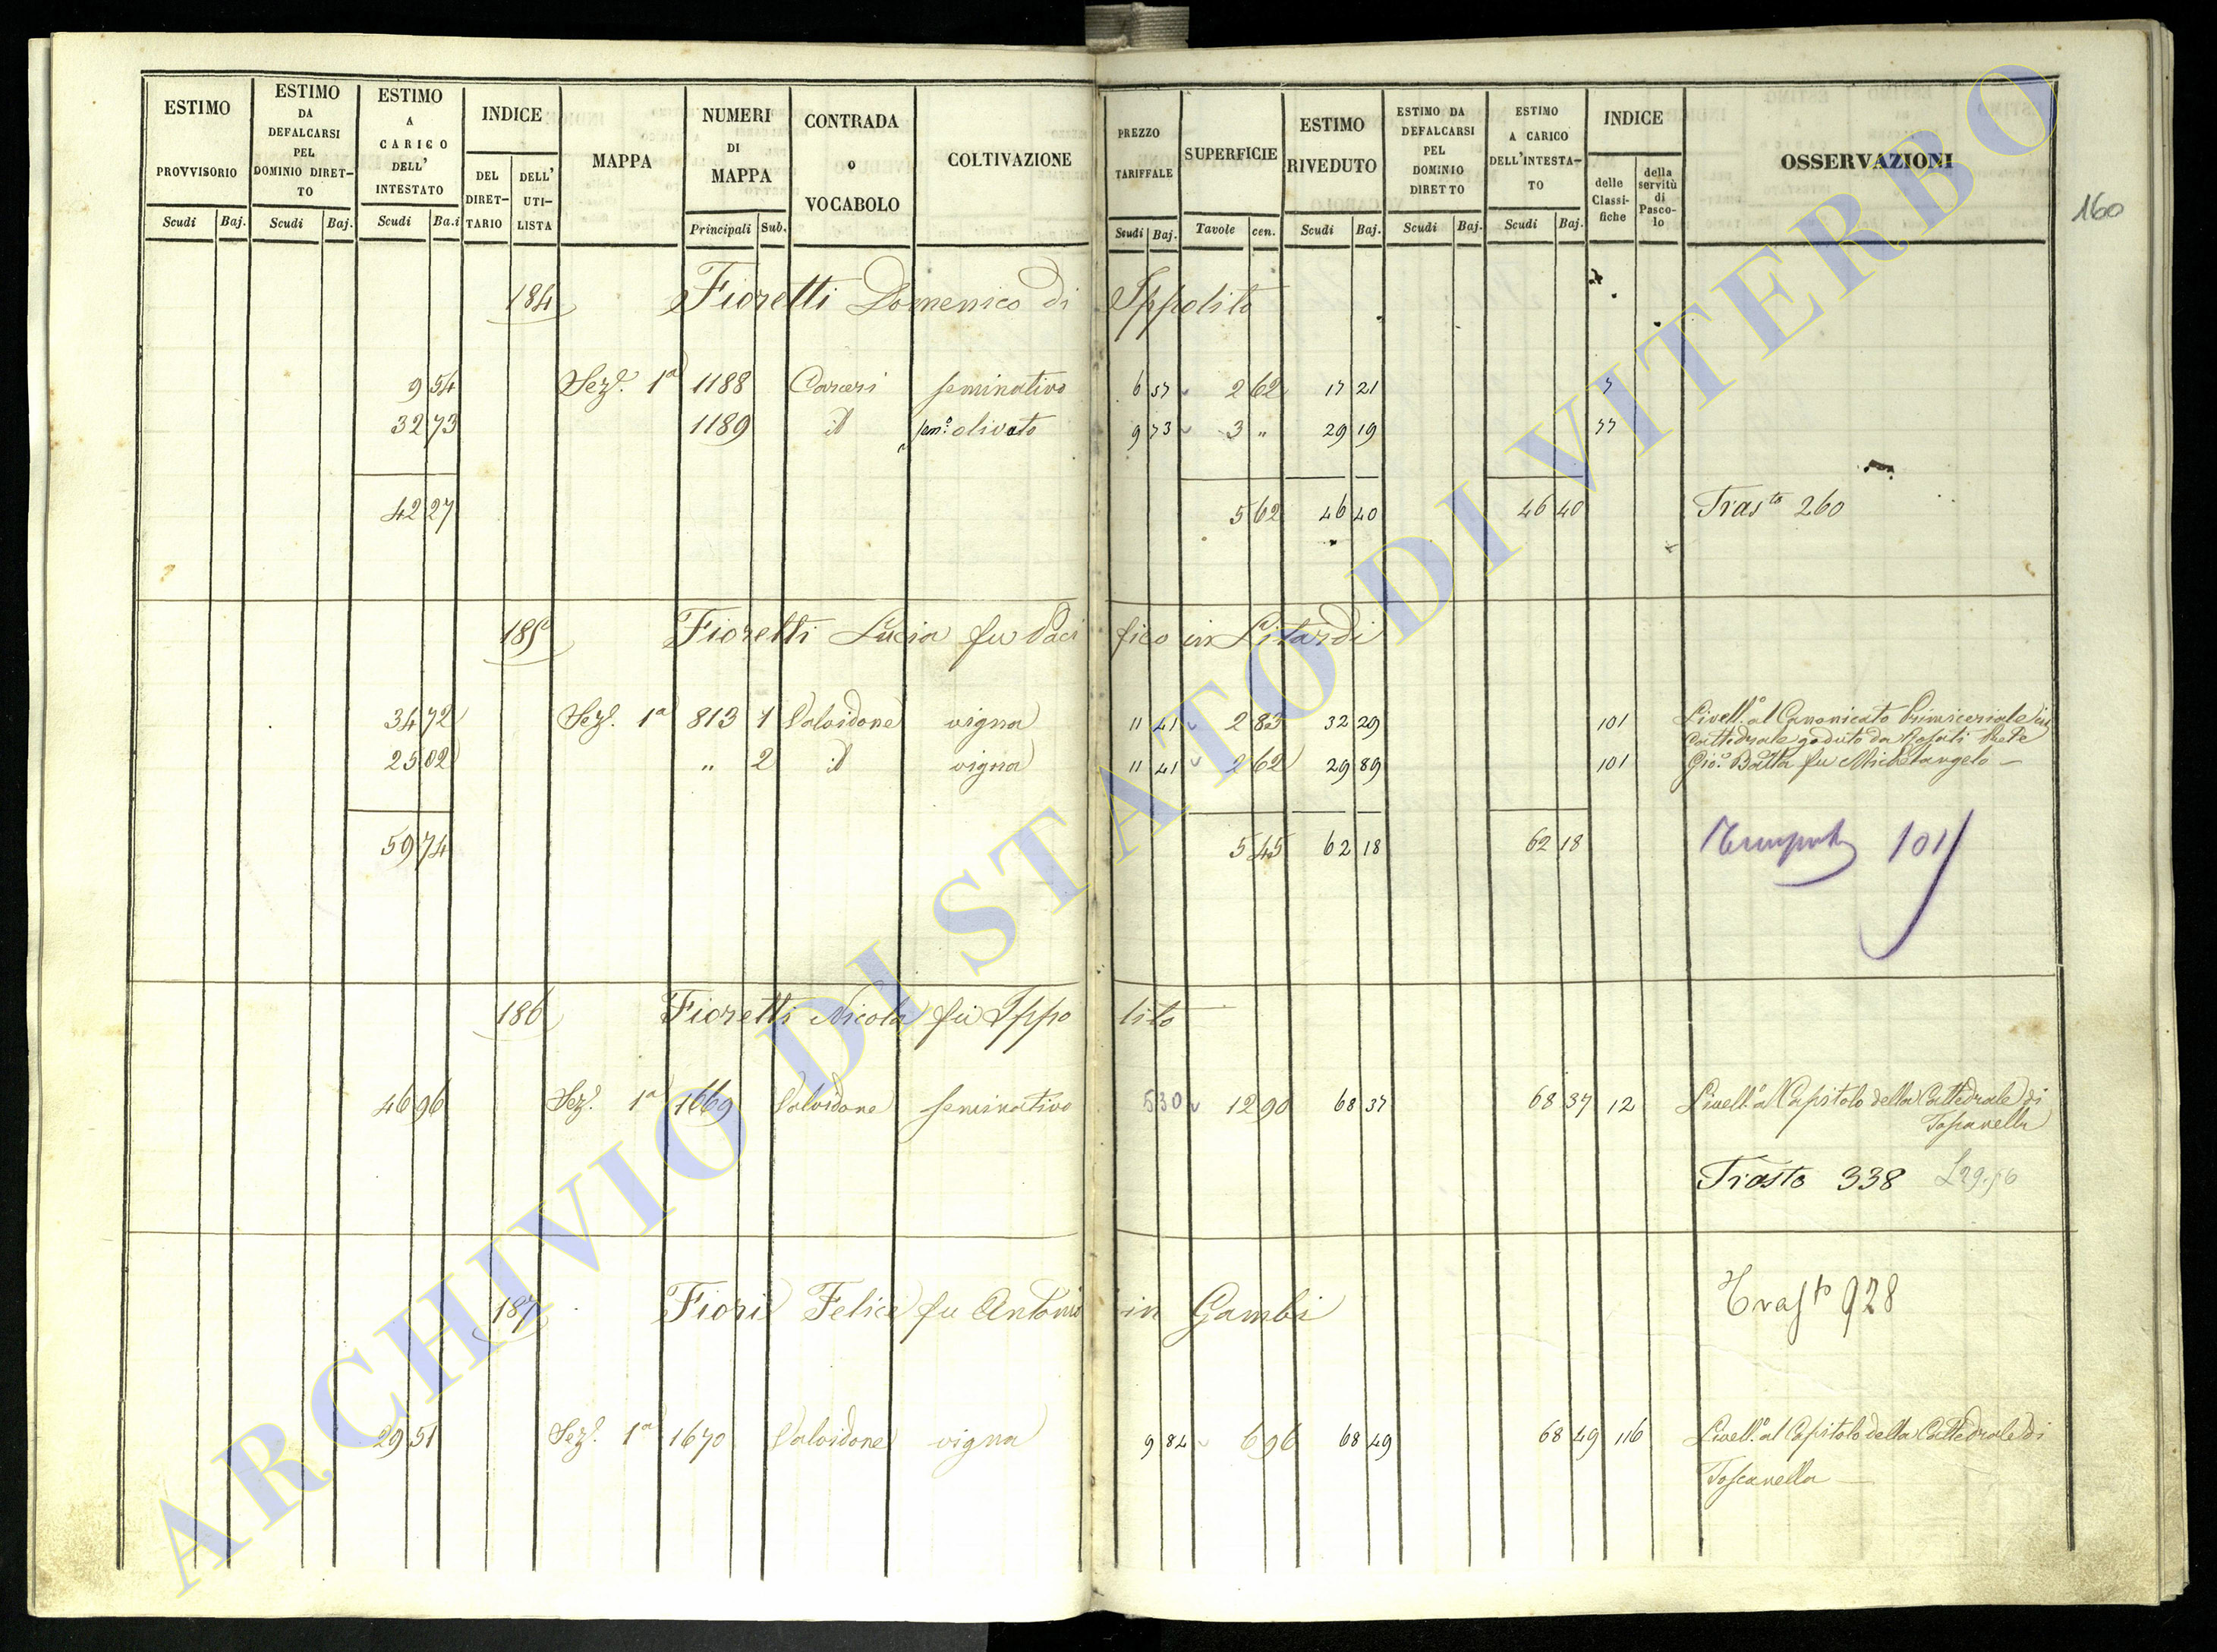 ESTIMO PROVVISORIO Scudi Baj.
ESTIMO DA DEFALCARSI PEL DOMINIO DIRET-TO Scudi Baj.
ESTIMO A CARICO DELL' INTESTATO Scudi Ba.i
INDICE DEL DIRET-TARIO DELL' UTI-LISTA
MAPPA
NUMERI DI MAPPA Principali Sub.
CONTRADA o VOCABOLO
COLTIVAZIONE
PREZZO TARIFFALE Scudi Baj.
SUPERFICIE Tavole cen.
ESTIMO RIVEDUTO Scudi Baj.
ESTIMO DA DEFALCARSI PEL DOMINIO DIRETTO Scudi Baj.
ESTIMO A CARICO DELL'INTESTA-TO Scudi Baj.
INDICE delle Classi-fiche della servitù di Pasco-lo
OSSERVAZIONI
160
184 Fioretti Domenico di Ippolito
9 54 Sez.e 1a 1188 Carceri seminativo 6 57 2 62 17 21 7
32 73 1189 id sem.o olivato 9 73 3 " 29 19 77
42 27 5 62 46 40 46 40 Tras.to 260
185 Fioretti Lucia fu Paci fico in Litardi
34 72 Sez.e 1a 813 1 Valvidone vigna 11 41 2 83 32 29 101 Livell.o al Canonicato Primiceriale in
Cattedrale goduto da Prete
25 02 " 2 id vigna 11 41 2 62 29 89 101 Gio. Batta fu Michelangelo —
59 74 5 45 62 18 62 18 101
186 Fioretti Nicola fu Ippo lito
46 96 Sez.e 1a 1669 Valvidone seminativo 5 30 12 90 68 37 68 37 12 Livell.o al Capitolo della Cattedrale di
Toscanella
Trasto 338
187 Fiori Felice fu Antonio in Gambi
Trasto 928
29 51 Sez.e 1a 1670 Valvidone vigna 9 84 6 96 68 49 68 49 116 Livell.o al Capitolo della Cattedrale di
Toscanella —
ARCHIVIO DI STATO DI VITERBO